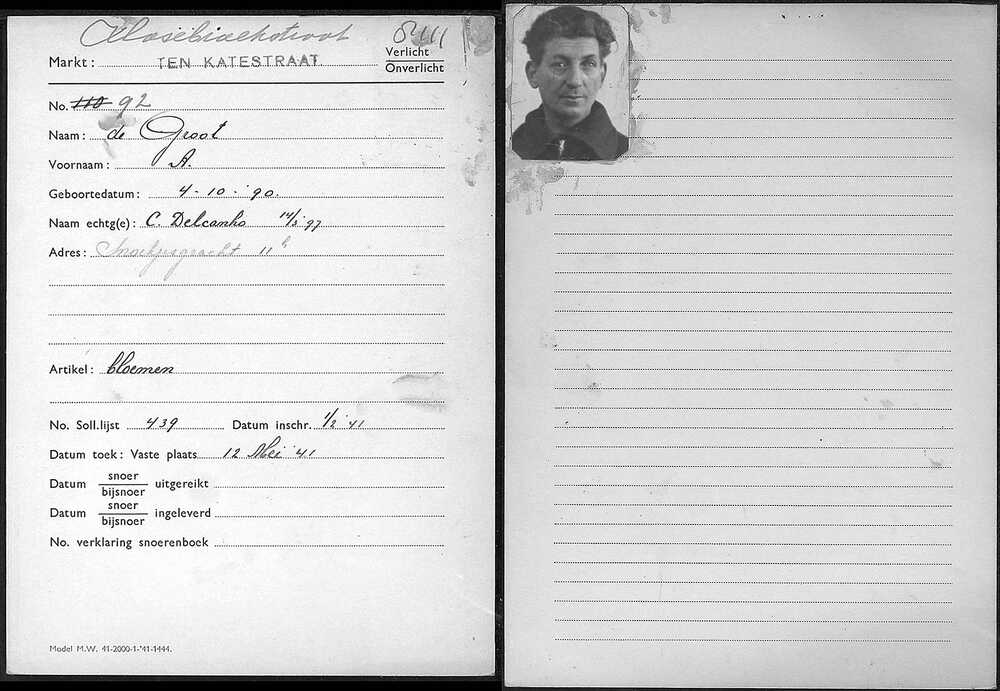 Markt: TEN KATESTRAAT.
Verlicht
Onverlicht
No. 110 92
Naam: de Groot
Voornaam: A.
Geboortedatum: 4-10-'90.
Naam echtg(e): C. Delcanho 14/5 '97
Adres: 11 h
Artikel: bloemen
No. Soll.lijst 439 Datum inschr. 1/2 '41
Datum toek: Vaste plaats 12 Mei '41
Datum snoer/bijsnoer uitgereikt
Datum snoer/bijsnoer ingeleverd
No. verklaring snoerenboek
Model M.W. 41-2000-1-'41-1444.